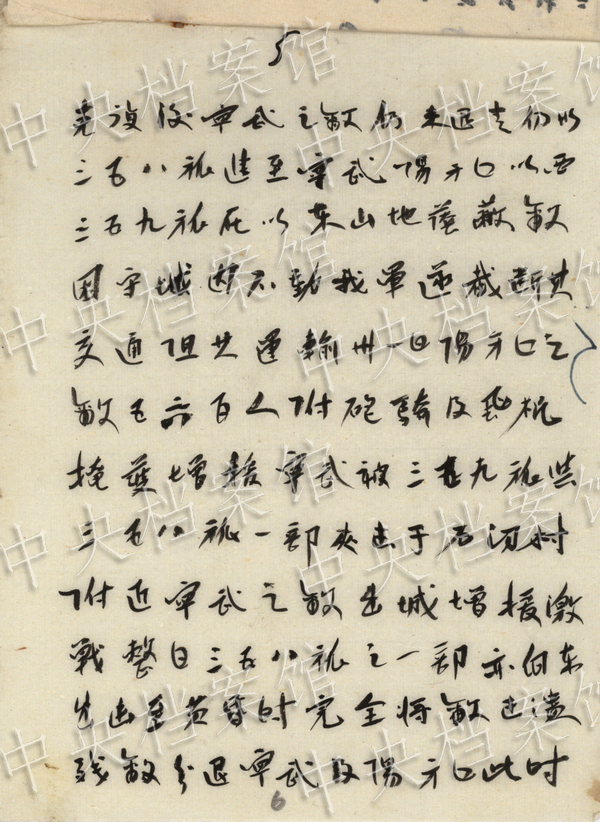 5
克復後寧武之敵仍未退走仍以
三五八旅進至寧武陽方口以西
三五九旅在以東山地蔭蔽敵
困守城內不動我軍遂截斷其
交通阻其運輸卅一日陽方口之
敵五六百人附砲騎及飛机
掩護增援寧武被三五九旅與
三五八旅一部夾击于石湖村
附近寧武之敵出城增援激
戰整日三五八旅之一部亦向東
出击至黄昏时完全將敵击潰
殘敵分退寧武及陽方口此时
6
中央档案馆